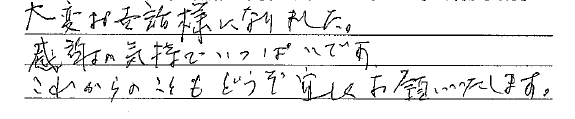 大変お世話様になりました。
感謝の気持でいっぱいです
これからのこともどうぞ宜しくお願いいたします。